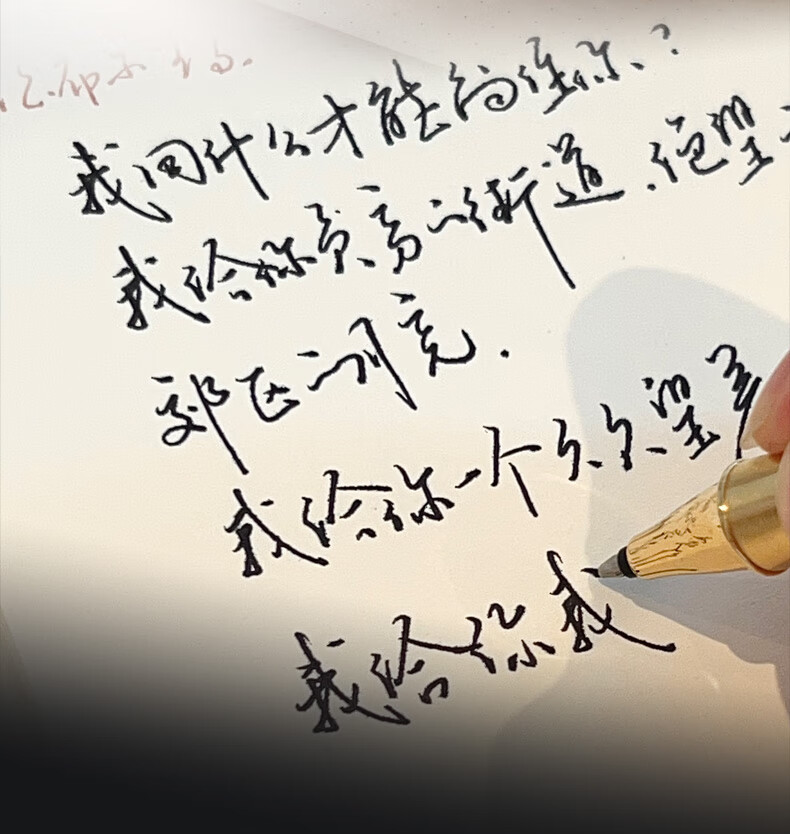 我用什么才能留住你?
我给你贫穷的街道、绝望
郊区的月亮.
我给你一个久久望着
我给你我